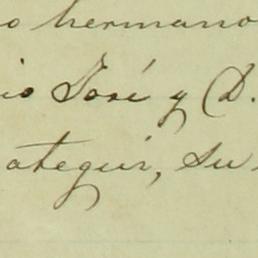 o hermano
io José y D.
ategui, su